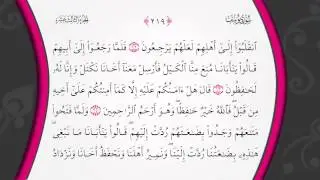 ٢١٩
ٱنقَلَبُوٓا۟ إِلَىٰٓ أَهْلِهِمْ لَعَلَّهُمْ يَرْجِعُونَ فَلَمَّا رَجَعُوٓا۟ إِلَىٰٓ أَبِيهِمْ
قَالُوا۟ يَٰٓأَبَانَا مُنِعَ مِنَّا ٱلْكَيْلُ فَأَرْسِلْ مَعَنَآ أَخَانَا نَكْتَلْ وَإِنَّا لَهُۥ
لَحَٰفِظُونَ قَالَ هَلْ ءَامَنُكُمْ عَلَيْهِ إِلَّا كَمَآ أَمِنتُكُمْ عَلَىٰٓ أَخِيهِ
مِن قَبْلُ فَٱللَّهُ خَيْرٌ حَٰفِظًا وَهُوَ أَرْحَمُ ٱلرَّٰحِمِينَ وَلَمَّا فَتَحُوا۟
مَتَٰعَهُمْ وَجَدُوا۟ بِضَٰعَتَهُمْ رُدَّتْ إِلَيْهِمْ قَالُوا۟ يَٰٓأَبَانَا مَا نَبْغِى
هَٰذِهِۦ بِضَٰعَتُنَا رُدَّتْ إِلَيْنَا وَنَمِيرُ أَهْلَنَا وَنَحْفَظُ أَخَانَا وَنَزْدَادُ